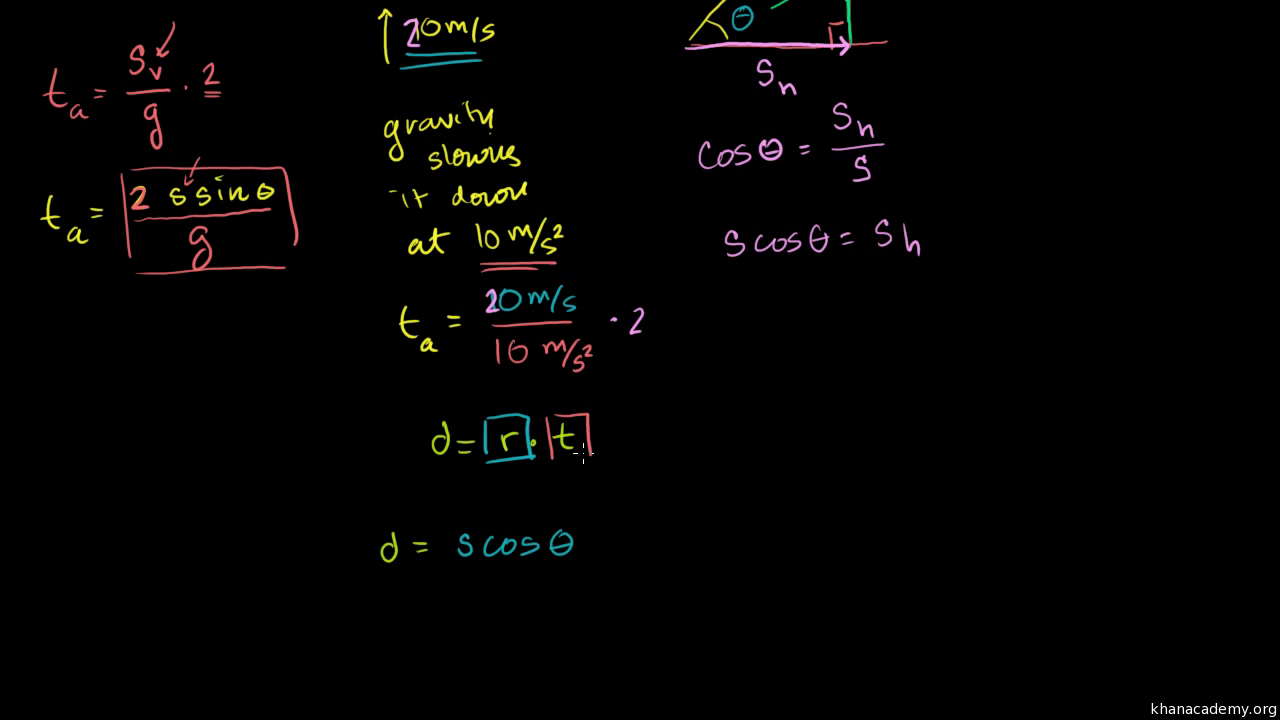 t_a = S_v/g · 2
t_a = 2 s sin θ / g
20 m/s
gravity
slows
it down
at 10 m/s²
t_a = 20 m/s / 10 m/s² · 2
d = r · t
d = s cos θ
θ
S_h
cos θ = S_h/S
s cos θ = S_h
khanacademy.org